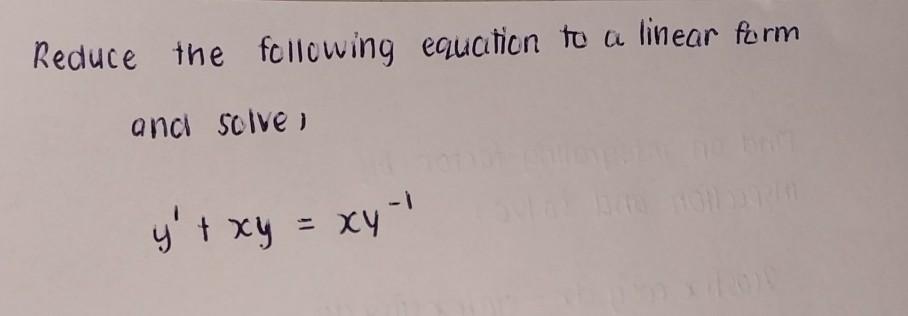 Reduce the following equation to a linear form
and solve;
y' + xy = xy⁻¹